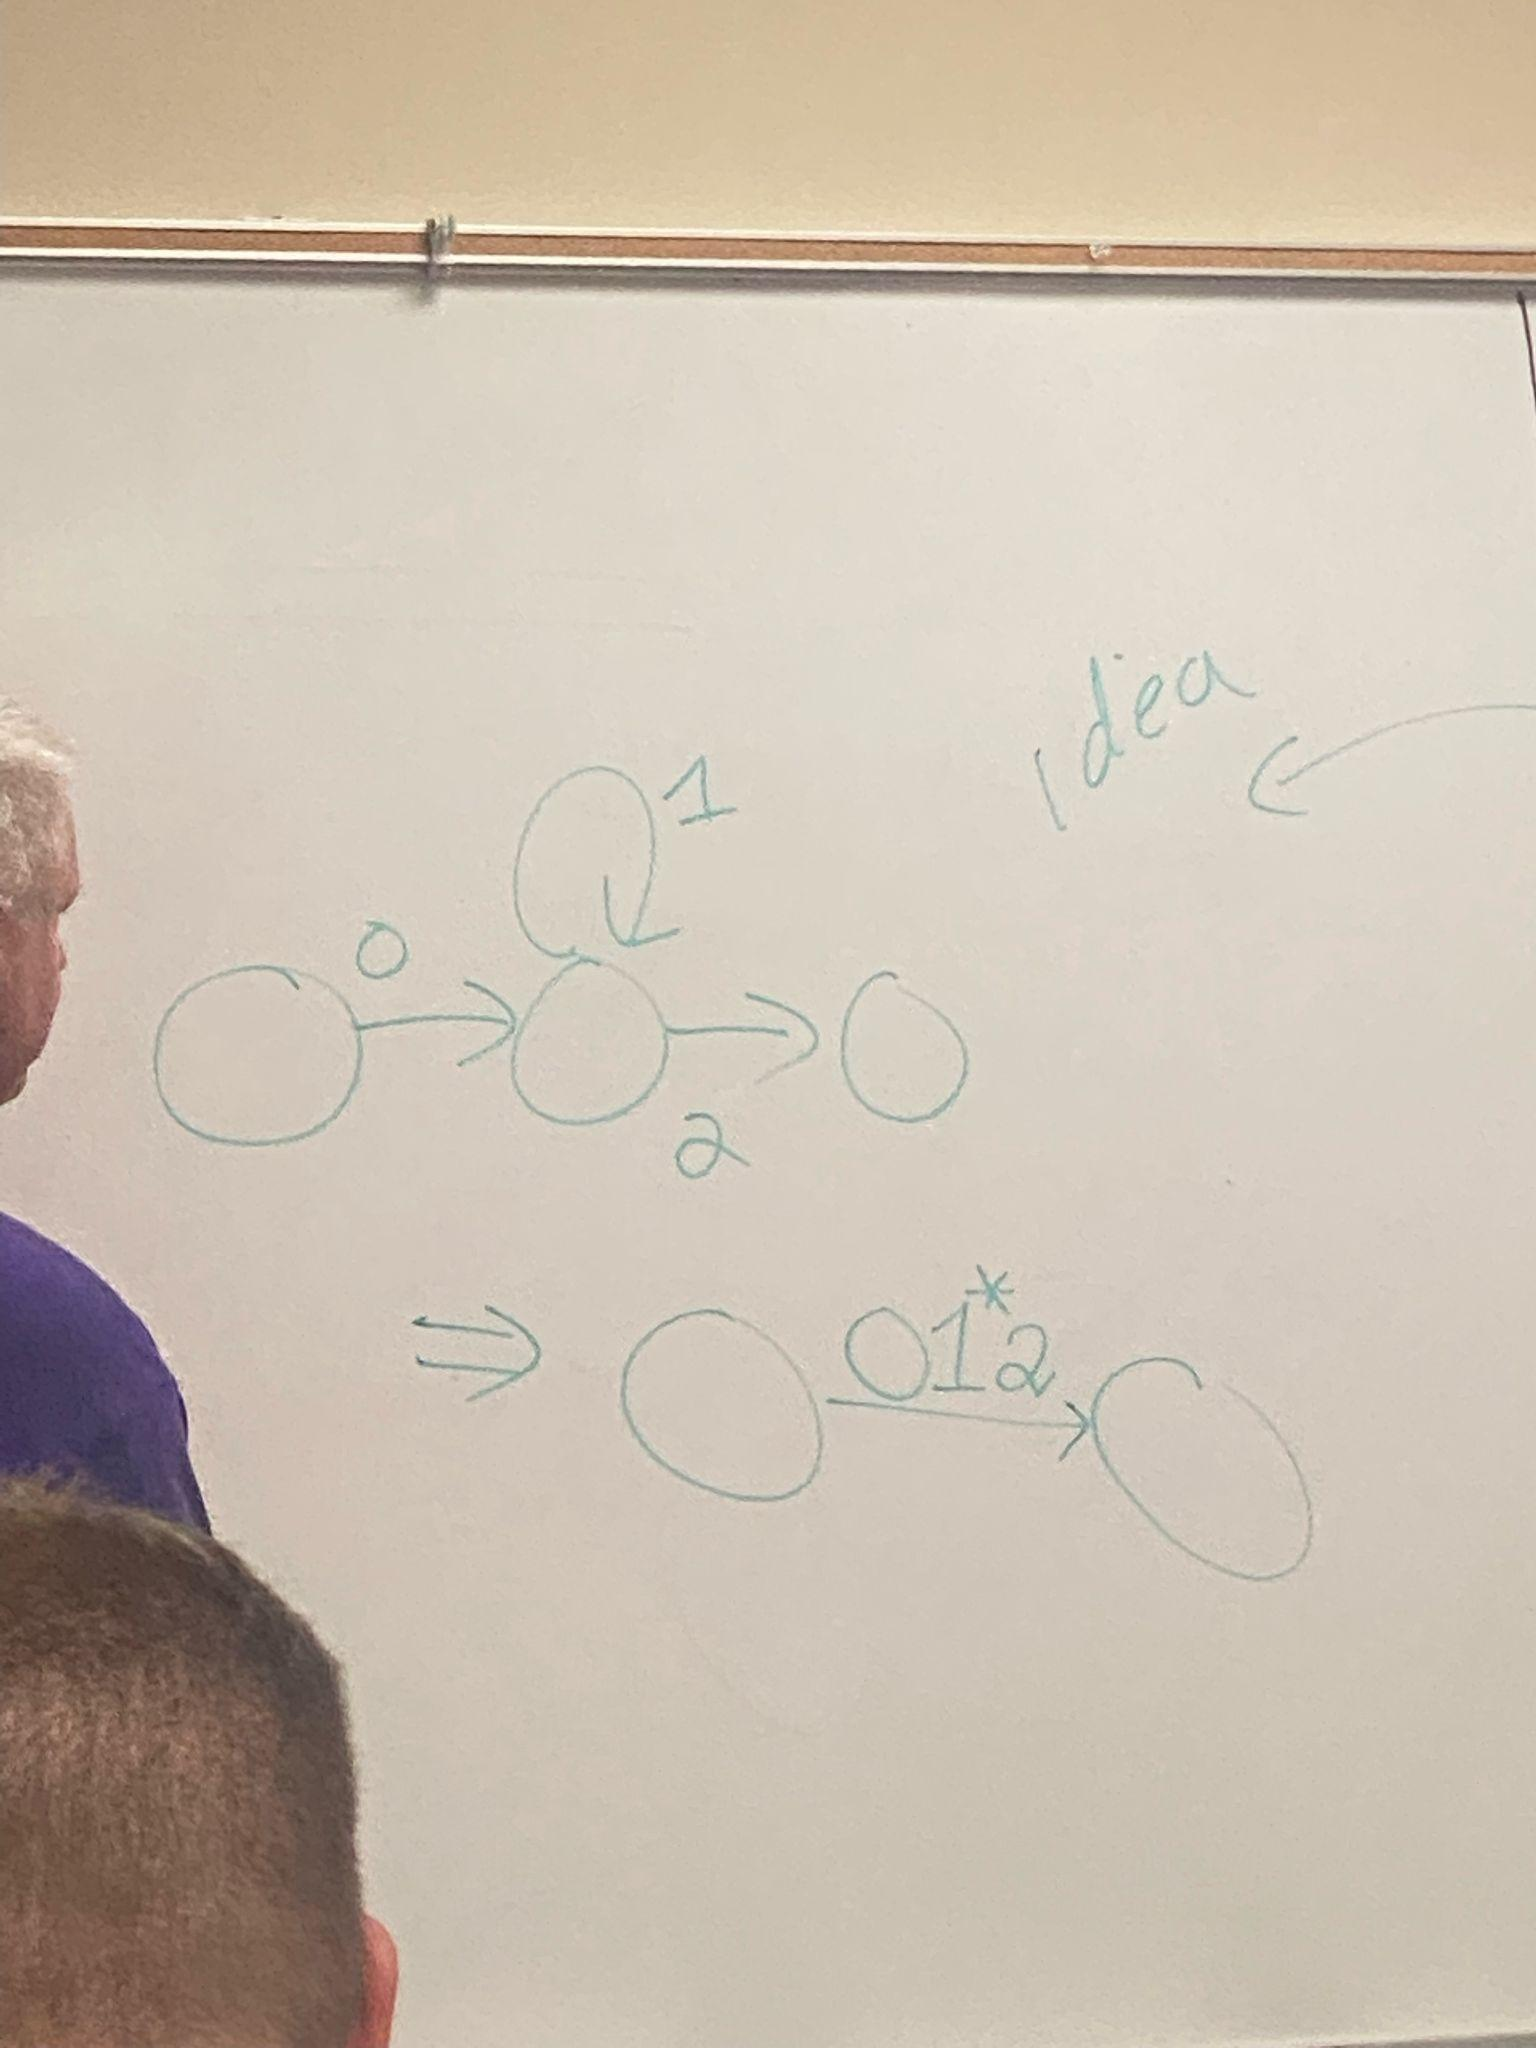 Idea
1
0
2
⇒ 01*2